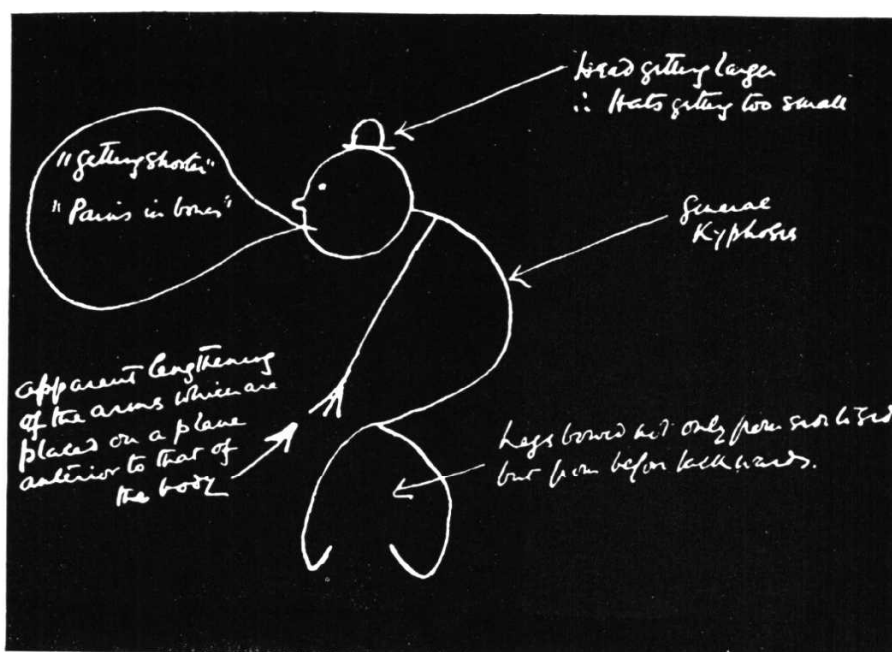 Head getting larger
∴ Hats getting too small
"getting shorter"
"Pains in bones"
general
Kyphosis
apparent lengthening
of the arms which are
placed on a plane
anterior to that of
the body
Legs bowed not only from side to side
but from before backwards.